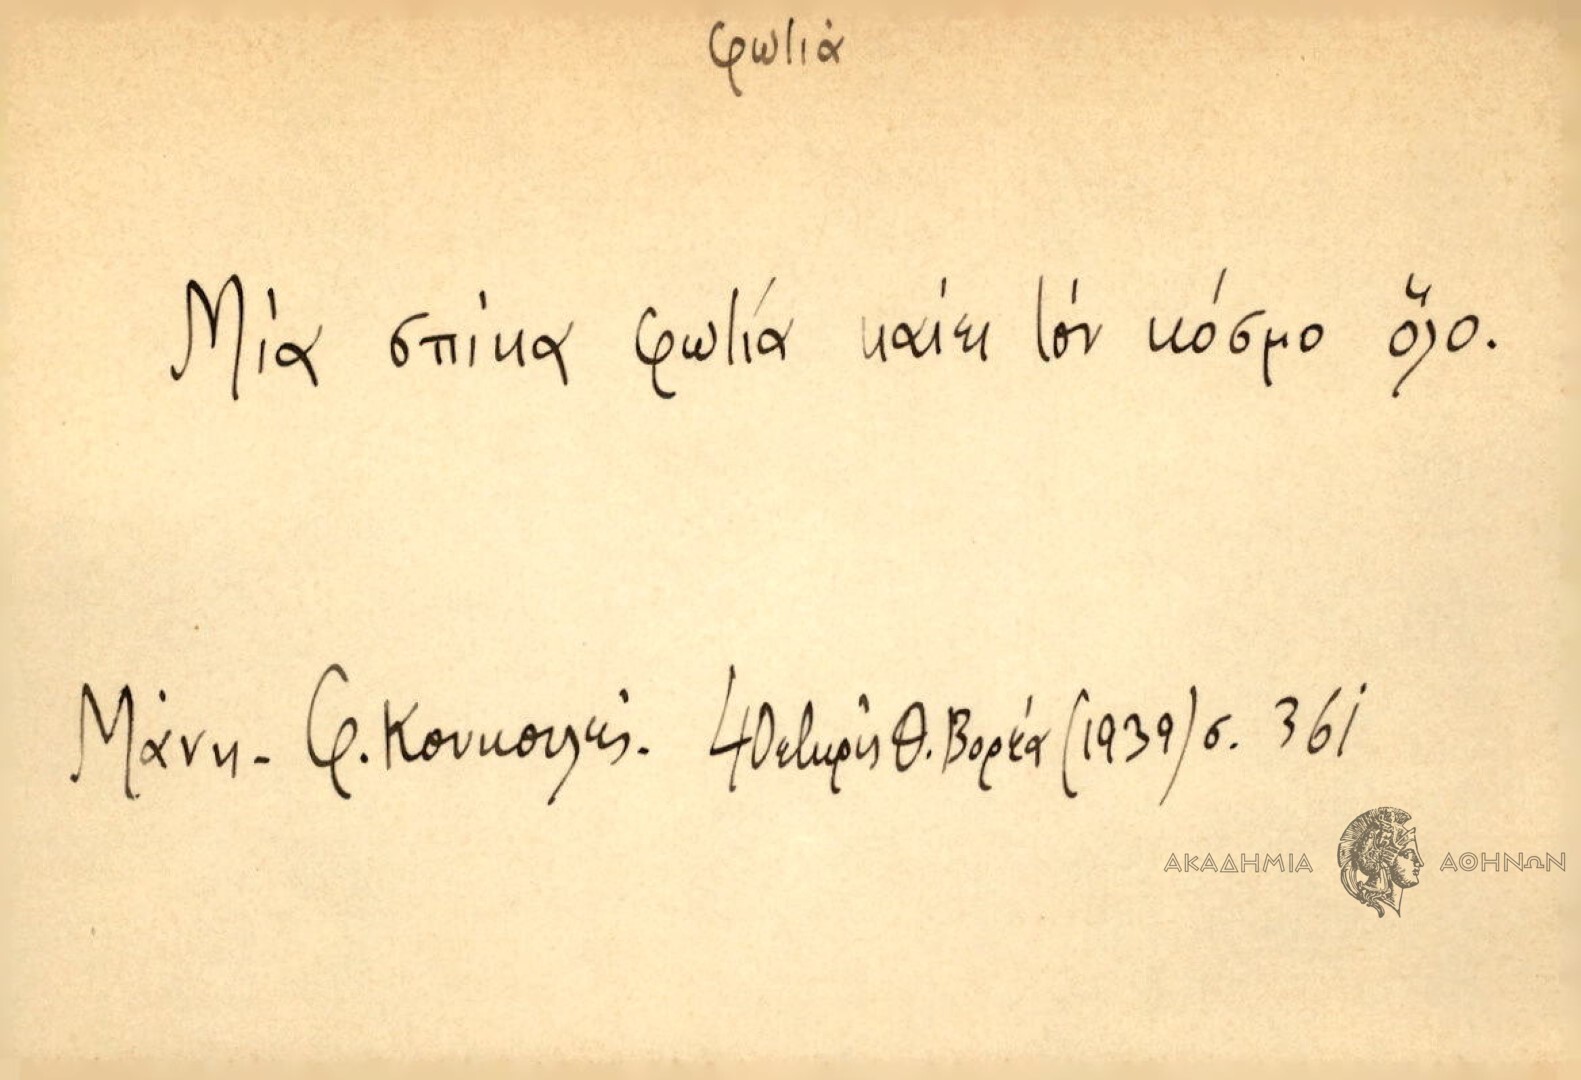 φωτιά
Μία σπίκα φωτιά καίει τόν κόσμο ὅλο.
Μάνη - Φ. Κουκουλές. 40ετηρὶς Θ. Βορέα (1939) σ. 361
ΑΚΑΔΗΜΙΑ ΑΘΗΝΩΝ